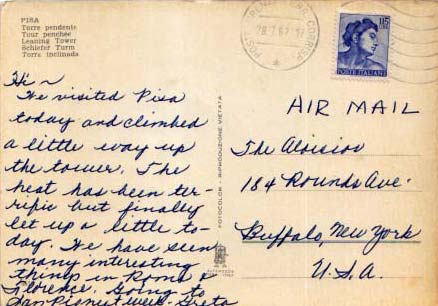 PISA
Torre pendente
Tour penchée
Leaning Tower
Schiefer Turm
Torre inclinada
115
POSTE ITALIANE
Hi ~
We visited Pisa
today and climbed
a little way up
the tower. The
heat has been ter-
rific but finally
let up a little to-
day. We have seen
many interesting
things in Rome &
Florence. Going to
San Remo next week.
AIR MAIL
The Aloision
184 Rounds Ave.
Buffalo, New York
U.S.A.
FOTOCOLOR - RIPRODUZIONE VIETATA